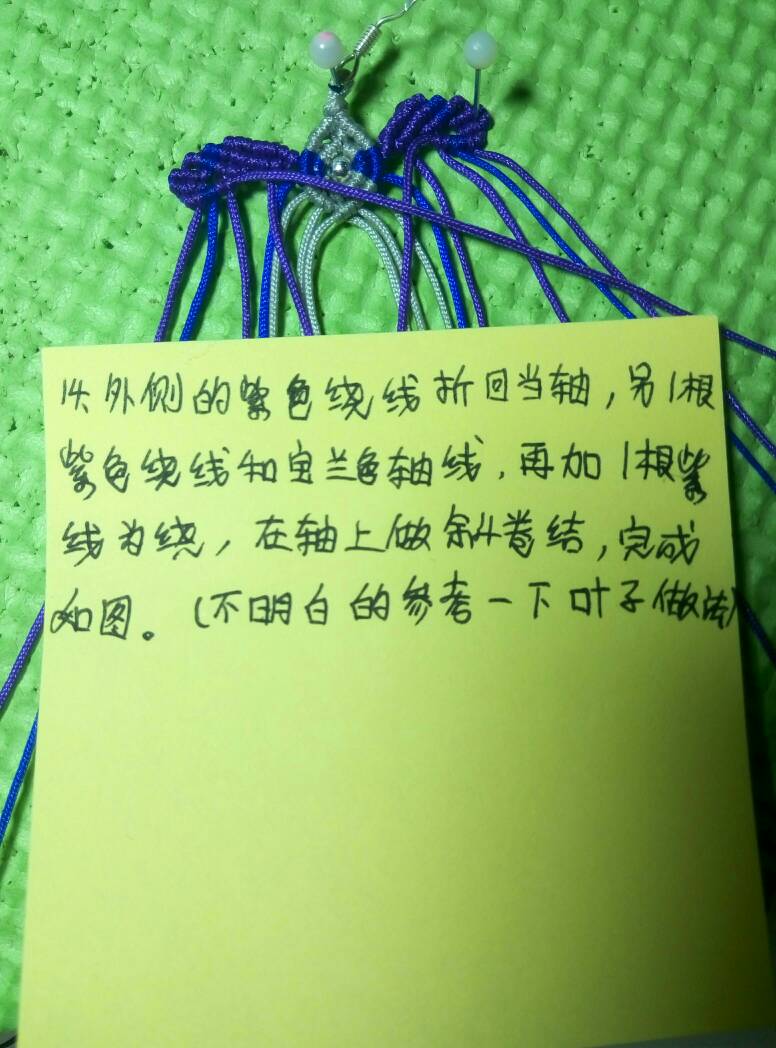 14、外侧的紫色绕线折回当轴,另1根
紫色绕线和宝兰色轴线,再加1根紫
线为绕,在轴上做斜卷结,完成
如图。(不明白的参考一下叶子做法)